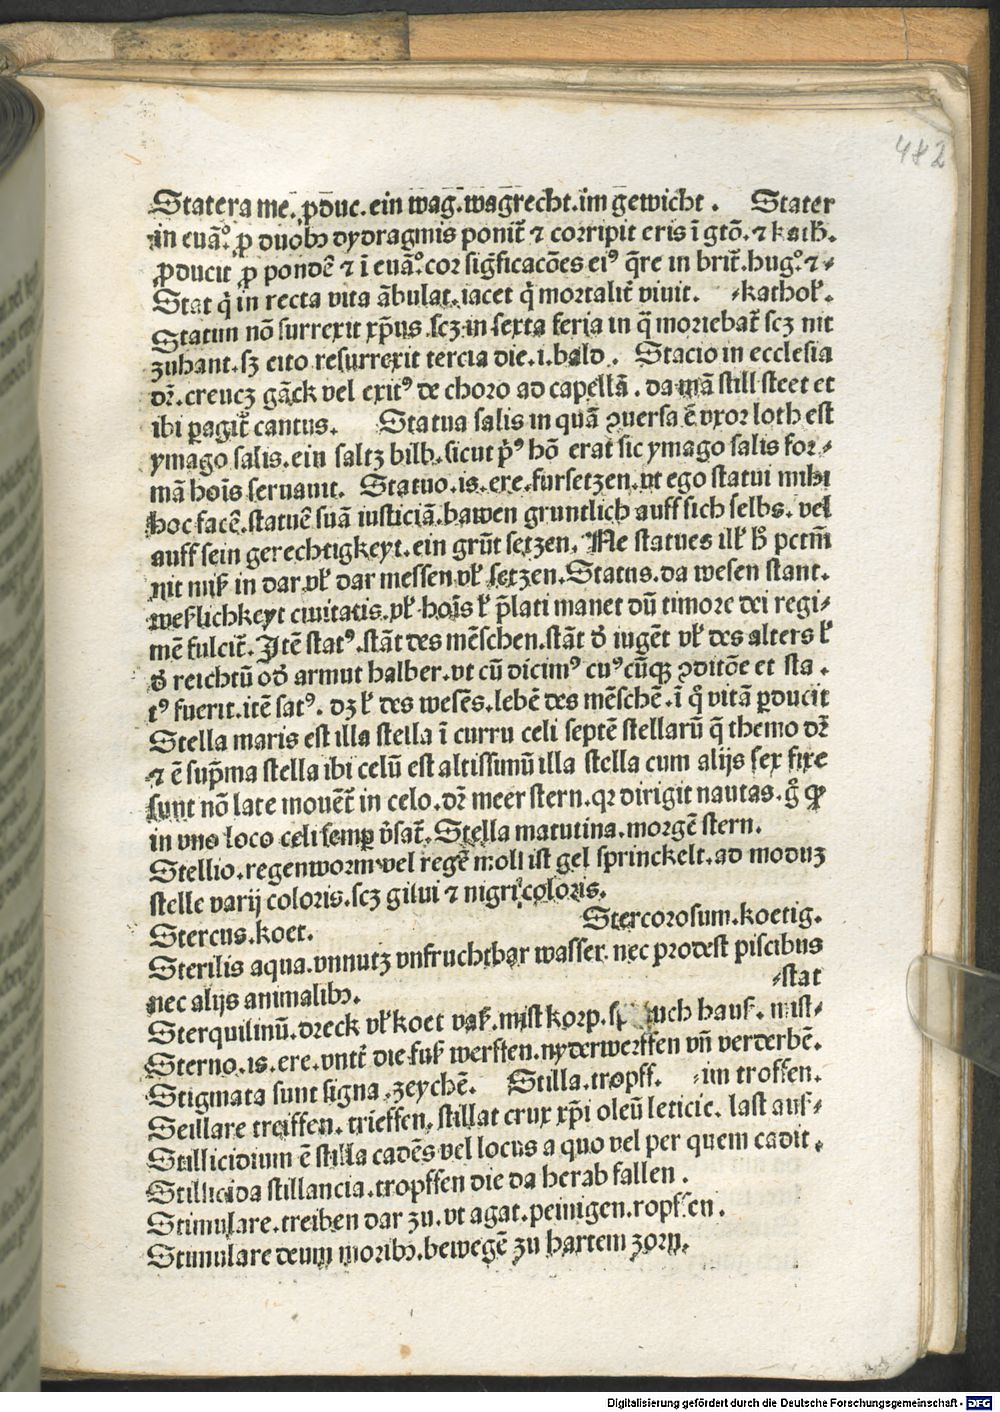 482
Statera me. ꝓduc. ein wag. wagrecht. im gewicht. Stater
in euāͦ. ꝓ duobꝫ dydragmis ponit̄ ⁊ corripit eris ī gtō. ⁊ kath̄.
ꝓducit ꝓ ponde᷑ ⁊ ī euāͦ. cor siḡficacōes eiꝰ q̄re in brit̄. hugͦ. ⁊⸗
Stat q̇ in recta vita ābulat. iacet q̇ mortalit̄ viuit. ⸗kathol̕.
Statim nō surrexit xp̄us. scꝫ in sexta feria in q̄ moriebat᷑ scꝫ nit
zuhant. sꝫ cito resurrexit tercia die. i. bald. Stacio in ecclesia
dr̄. creucz gāck vel exitꝰ de choro ad capellā. da man still steet et
ibi ꝑagit᷑ cantus. Statua salis in quā ꝯuersa ē vxor loth est
ymago salis. ein saltz bilb. sicut p̄ꝰ hō erat sic ymago salis for⸗
mā hoīs seruauit. Statuo. is. ere. fursetzen. vt ego statui mihi
hoc face᷑. statue᷑ suā iusticiā. bawen gruntlich auff sich selbs. vel
auff sein gerechtigkeyt. ein grūt setzen. Ne statues ill̕ h̄ pctm̄
nit miß in dar vl̕ dar messen vl̕ setzen. Status. da wesen stant.
weßlichkeyt ciuitatis. vl̕ hoīs l̕ p̄lati manet dū timore dei regi⸗
mē fulcit᷑. Itē statꝰ. stāt des mēschen. stāt d̕ iugēt vl̕ des alters l̕
d̕ reichtū od̕ armut halber. vt cū dicimꝰ cuꝰcūqꝫ ꝯditōe et sta.
tꝰ fuerit. itē satꝰ. dꝫ l̕ des wesēs. lebē des mēschē. ī q̇ vitā ꝑducit
Stella maris est illa stella ī curru celi septē stellarū q̄ themo dr̄
⁊ ē sup̄ma stella ibi celū est altissimū illa stella cum alijs sex fixe
sunt nō late mouēt᷑ in celo. dr̄ meer stern. qꝛ dirigit nautas. gͦ ꝙ
in vno loco celi semꝑ v̕sat᷑. Stella matutina. morgē stern.
Stellio. regenworm vel regē moli ist gel sprinckelt. ad moduꝫ
stelle varij coloris. scꝫ gilui ⁊ nigri coloris.
Stercus. koet. Stercorosum. koetig.
Sterilis aqua. vnnutz vnfruchtbar wasser. nec prodest piscibus
nec alijs animalibꝫ. ⸗stat
Sterquilinū. dreck vl̕ koet vaß. mist korp. such hauß. mist⸗
Sterno. is. ere. vntē die fuß werffen. nyderwerffen vn̄ verderbē.
Stigmata sunt signa. zeychē. Stilla. tropff. ⸗im troffen.
Seillare treiffen. trieffen. stillat crux xp̄i oleū leticie. last auß⸗
Stillicidium ē stilla cadēs vel locus a quo vel per quem cadit.
Stillicida stillancia. tropffen die da herab fallen.
Stimulare. treiben dar zu. vt agat. peinigen. ropffen.
Stimulare deum moribꝫ. bewegē zu hartem zorn.
Digitalisierung gefördert durch die Deutsche Forschungsgemeinschaft - DFG